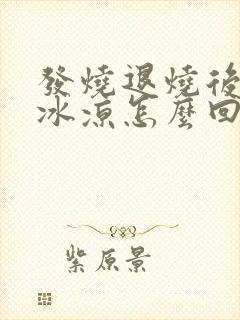 發燒退燒後
冰涼怎麼回
紫原景